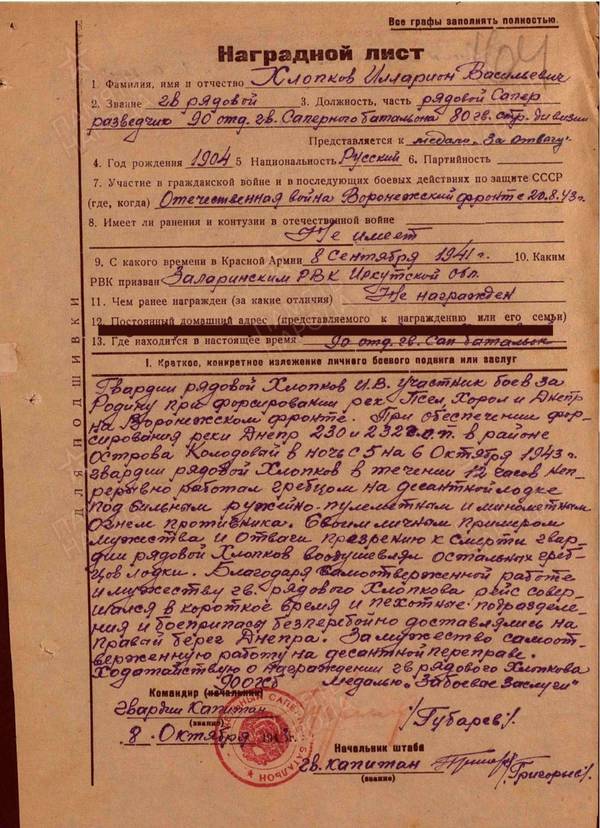 Все графы заполнять полностью.
Наградной лист
1. Фамилия, имя и отчество Хлопков Илларион Васильевич
2. Звание гв рядовой 3. Должность, часть рядовой Сапер
разведчик 90 отд. гв. Саперного батальона 80 гв. стр. дивизии
Представляется к медали "За Отвагу"
4. Год рождения 1904 5 Национальность Русский 6. Партийность
7. Участие в гражданской войне и в последующих боевых действиях по защите СССР
(где, когда) Отечественная война Воронежский фронт с 20.8.43г.
8. Имеет ли ранения и контузии в отечественной войне
Не имеет
9. С какого времени в Красной Армии 8 Сентября 1941г. 10. Каким
РВК призван Заларинским РВК Иркутской обл.
11. Чем ранее награжден (за какие отличия) Не награжден
12. Постоянный домашний адрес (представляемого к награждению или его семьи)
13. Где находится в настоящее время 90 отд. гв. Сап батальон
I. Краткое, конкретное изложение личного боевого подвига или заслуг
Гвардии рядовой Хлопков И.В. участник боев за
Родину при форсировании рек Псел, Хорол и Днепр
на Воронежском фронте. При обеспечении фор-
сирования реки Днепр 230 и 232 г.с.п. в районе
Острова Колодовой в ночь с 5 на 6 Октября 1943г.
гвардии рядовой Хлопков в течении 12 часов неп-
рерывно работал гребцом на десантной лодке
под сильным ружейно-пулеметным и минометным
Огнем противника. Своим личным примером
мужества и Отваги презрению к смерти гвар-
дии рядовой Хлопков воодушевлял остальных греб-
цов лодки. Благодаря самоотверженной работе
и мужеству гв. рядового Хлопкова рейс совер-
шался в короткое время и пехотные подразделе-
ния и боеприпасы безперебойно доставлялись на
правый берег Днепра. За мужество самоот-
верженную работу на десантной переправе.
Ходатайствую о награждении гв рядового Хлопкова
Медалью "За боевые Заслуги"
Командир (начальник)
гвардии Капитан /Губарев/.
(звание)
8. Октября 1943г.
Начальник штаба
гв. капитан /Григорьев/.
(звание)
ДЛЯ ПОДШИВКИ